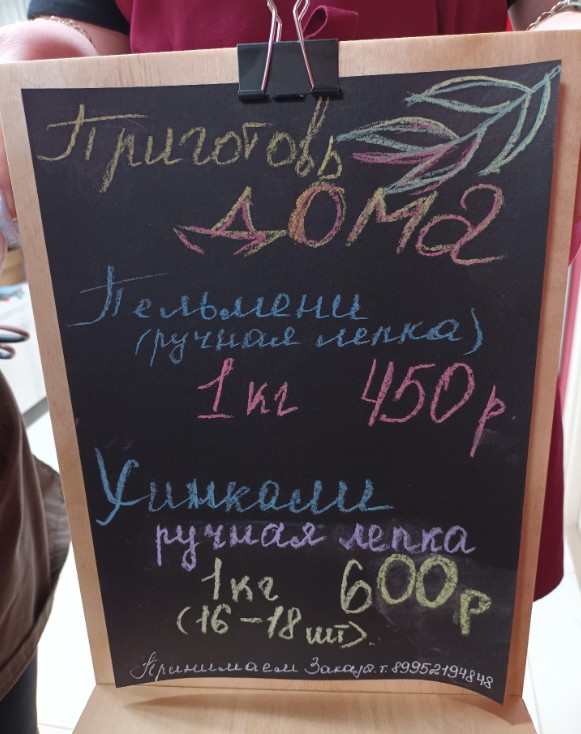 Приготовь
дома
Пельмени
(ручная лепка)
1 кг 450 р
Хинкали
ручная лепка
1 кг 600 р
(16-18 шт).
Принимаем Заказы. т. 89952194848